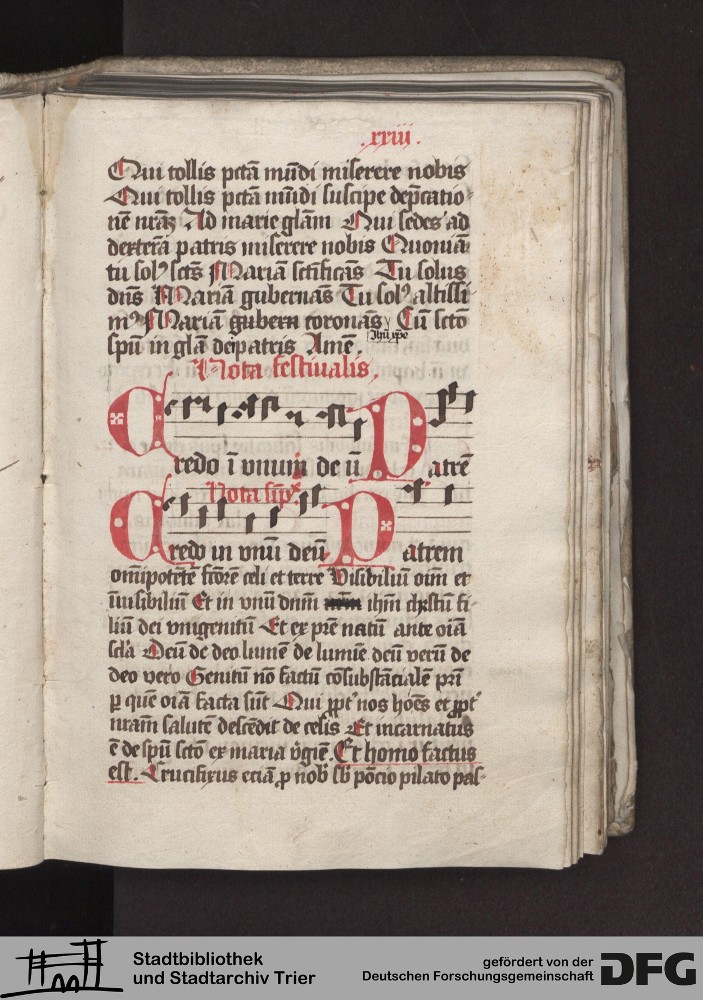 .xxiii.
Qui tollis pctā mūdi miserere nobis
Qui tollis pctā mūdi suscipe dep̄catio-
nē nr̄aȝ Ad marie glām Qui sedes ad
dexterā patris miserere nobis Quoniā
tu solꝰ sctꝰ Mariā sctificās Tu solus
dn̄s Mariā gubernās Tu solꝰ altissi
mꝰ Mariā gubern coronās Cū sctō
ihū xp̄e
spū in glā dei patris Amē.
Nota festivalis.
Credo ī vnum de ū Patrē
Nota sīp̄x
Credo in vnū deū Patrem
om̄ipotētē fc̄orē celi et terre Visibiliū oīm et
īuisibiliū Et in vnū dn̄m ihm̄ chr̄istū fi-
liū dei vnigenitū Et ex pr̄e natū ante oīa
scl̄a Deū de deo lumē de lumīe deū verū de
deo vero Genitū nō factū cōsubstācialē pr̄i
ꝑ quē oīa facta sūt Qui ꝓpt̄ nos hoīes et ꝓpt̄
nr̄am salutē descēdit de celis Et incarnatus
ē de spū sctō ex maria v̄gīe. Et homo factus
est. Crucifixus eciā ꝓ nobꝭ sb̄ pōcio pilato pas-
Stadtbibliothek
und Stadtarchiv Trier
gefördert von der
Deutschen Forschungsgemeinschaft
DFG